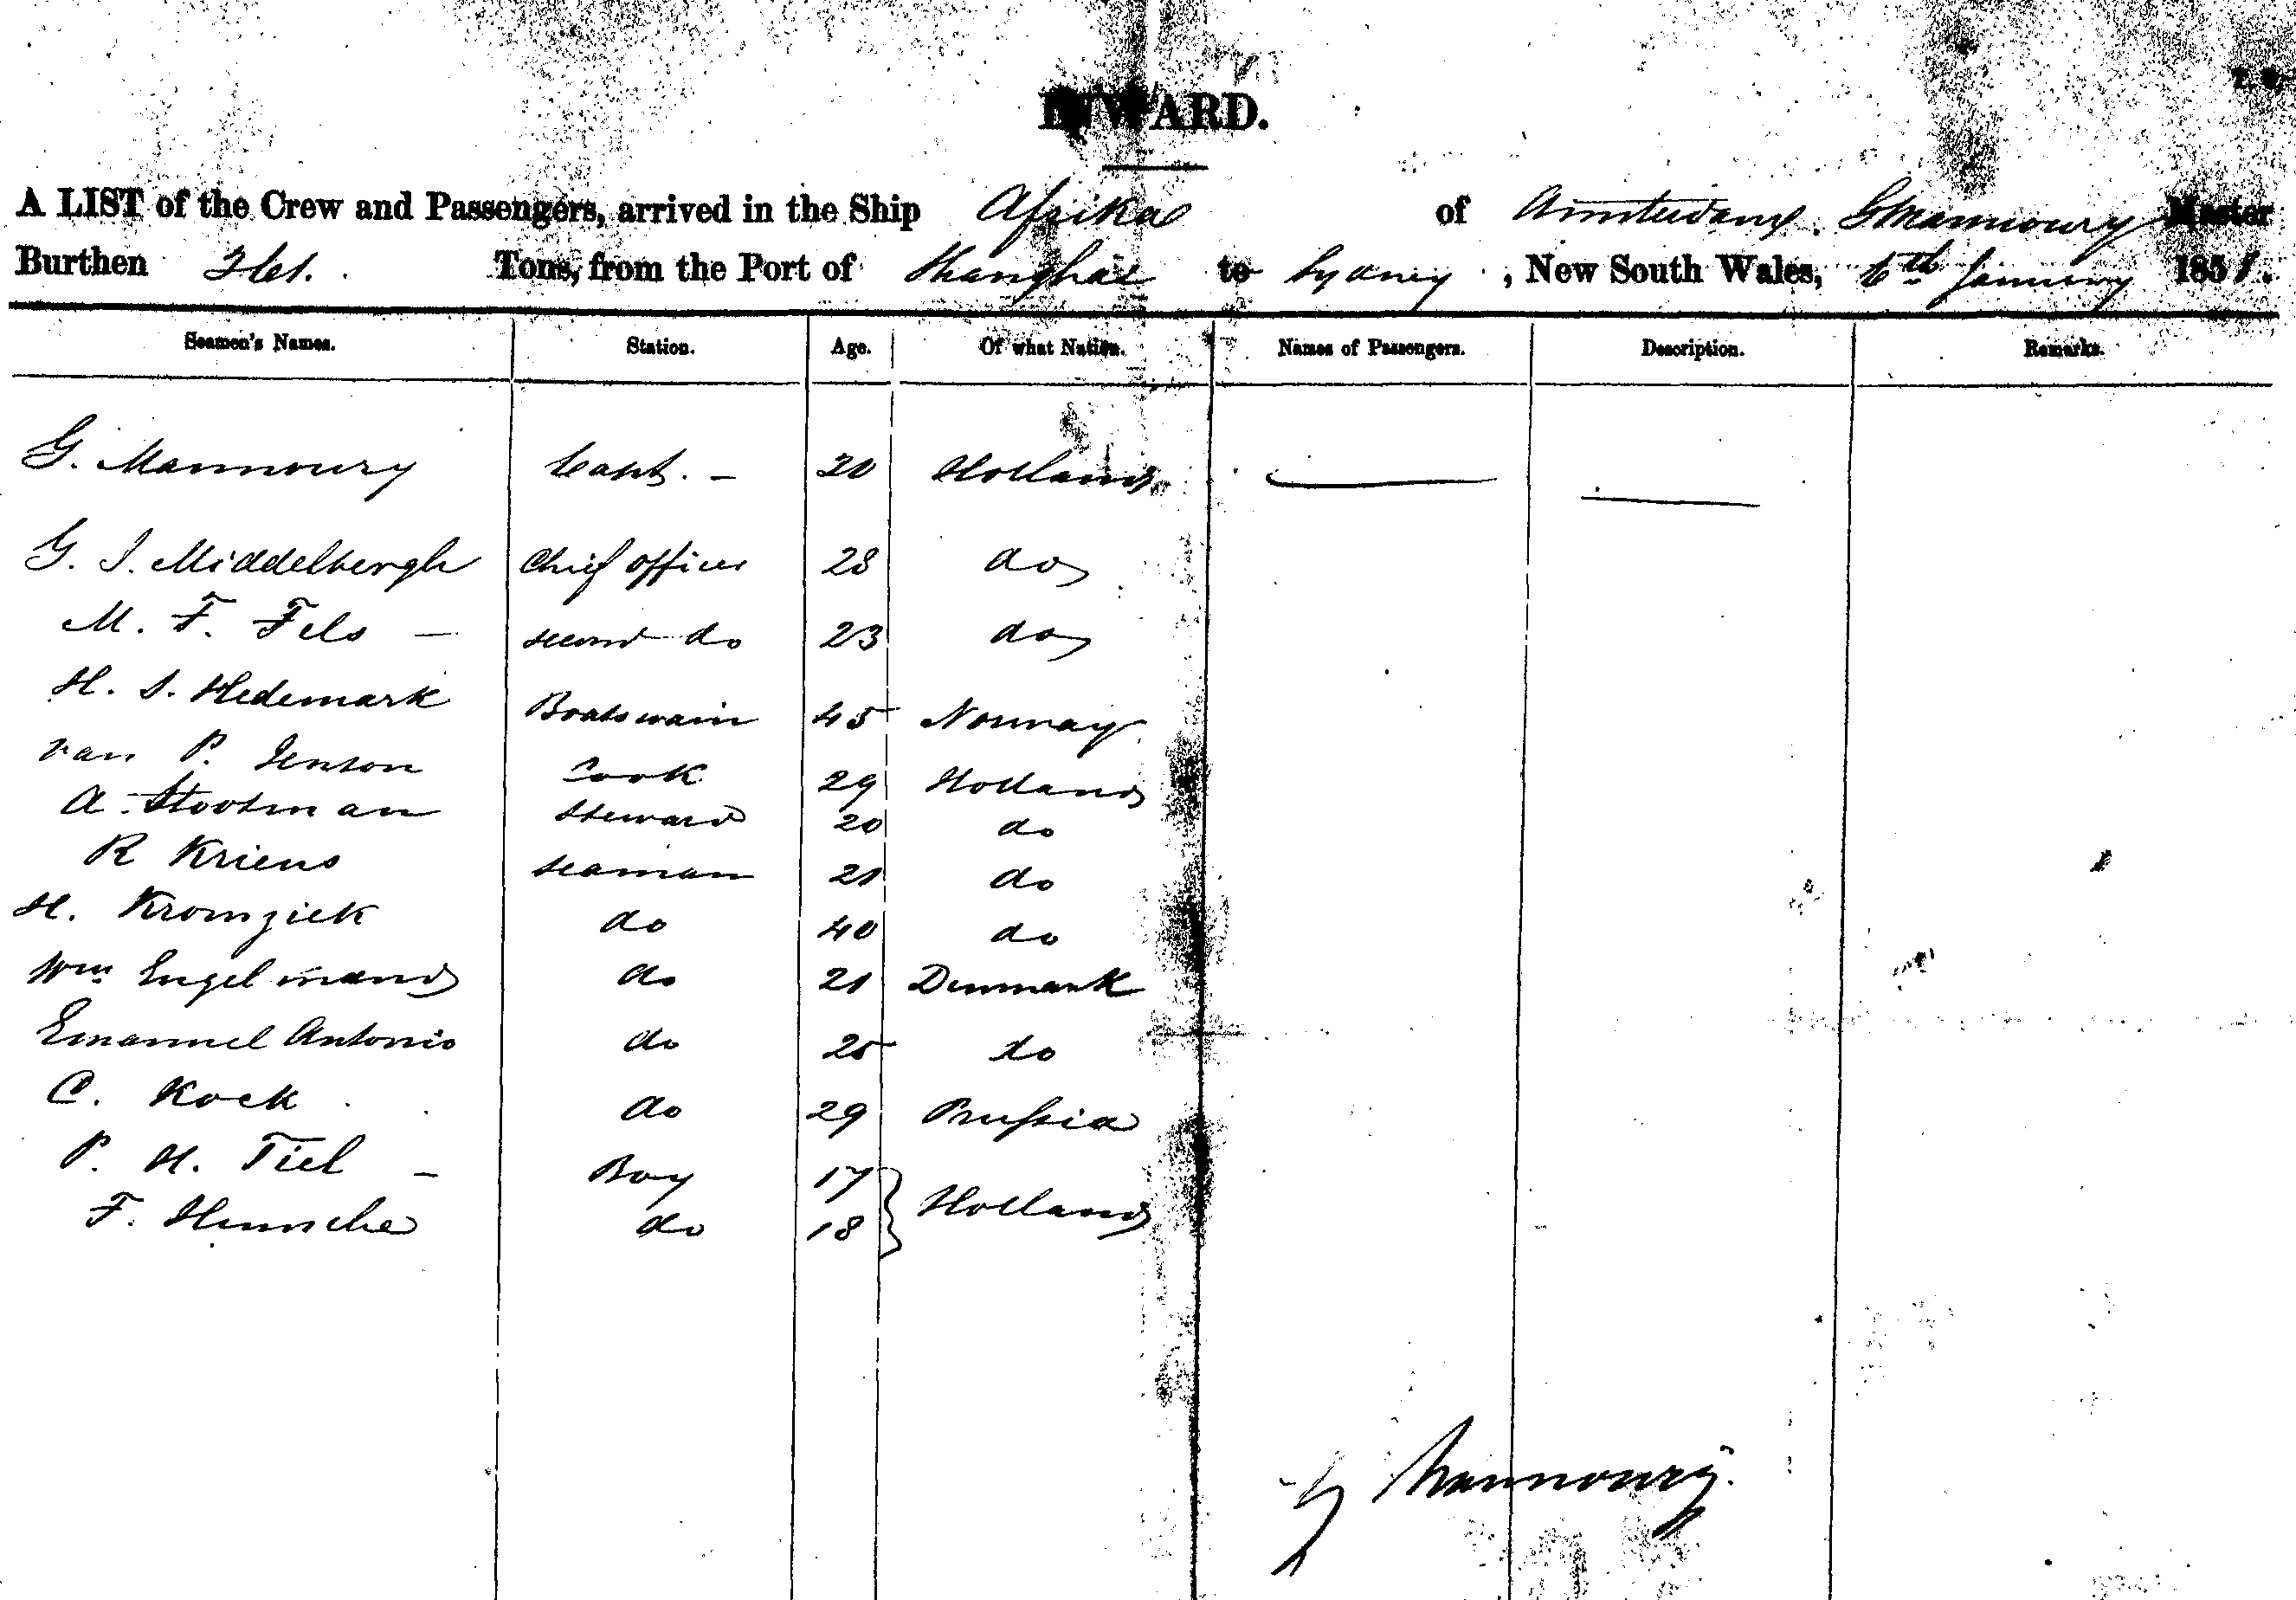 INWARD.
A LIST of the Crew and Passengers, arrived in the Ship Afrika of Amsterdam G Mannoury Master
Burthen Tons, from the Port of Shanghae to Sydney, New South Wales, 6th January 1851.
Seamen's Names. Station. Age. Of what Nation. Names of Passengers. Description. Remarks.
G. Mannoury Capt. - 20 Holland
G. J. Middelbergh Chief officer 28 do
M. F. Fels - second do 23 do
H. S. Hedemark Boatswain 45 Norway
van P. Jenson Cook 29 Holland
A. Stootman Steward 20 do
R Kriens seaman 21 do
H. Kromziek do 40 do
Wm Engelmand do 21 Denmark
Emanuel Antonio do 25 do
C. Kock do 29 Prussia
P. H. Tiel - Boy 17 Holland
F. Hunsche do 18
G Mannoury.